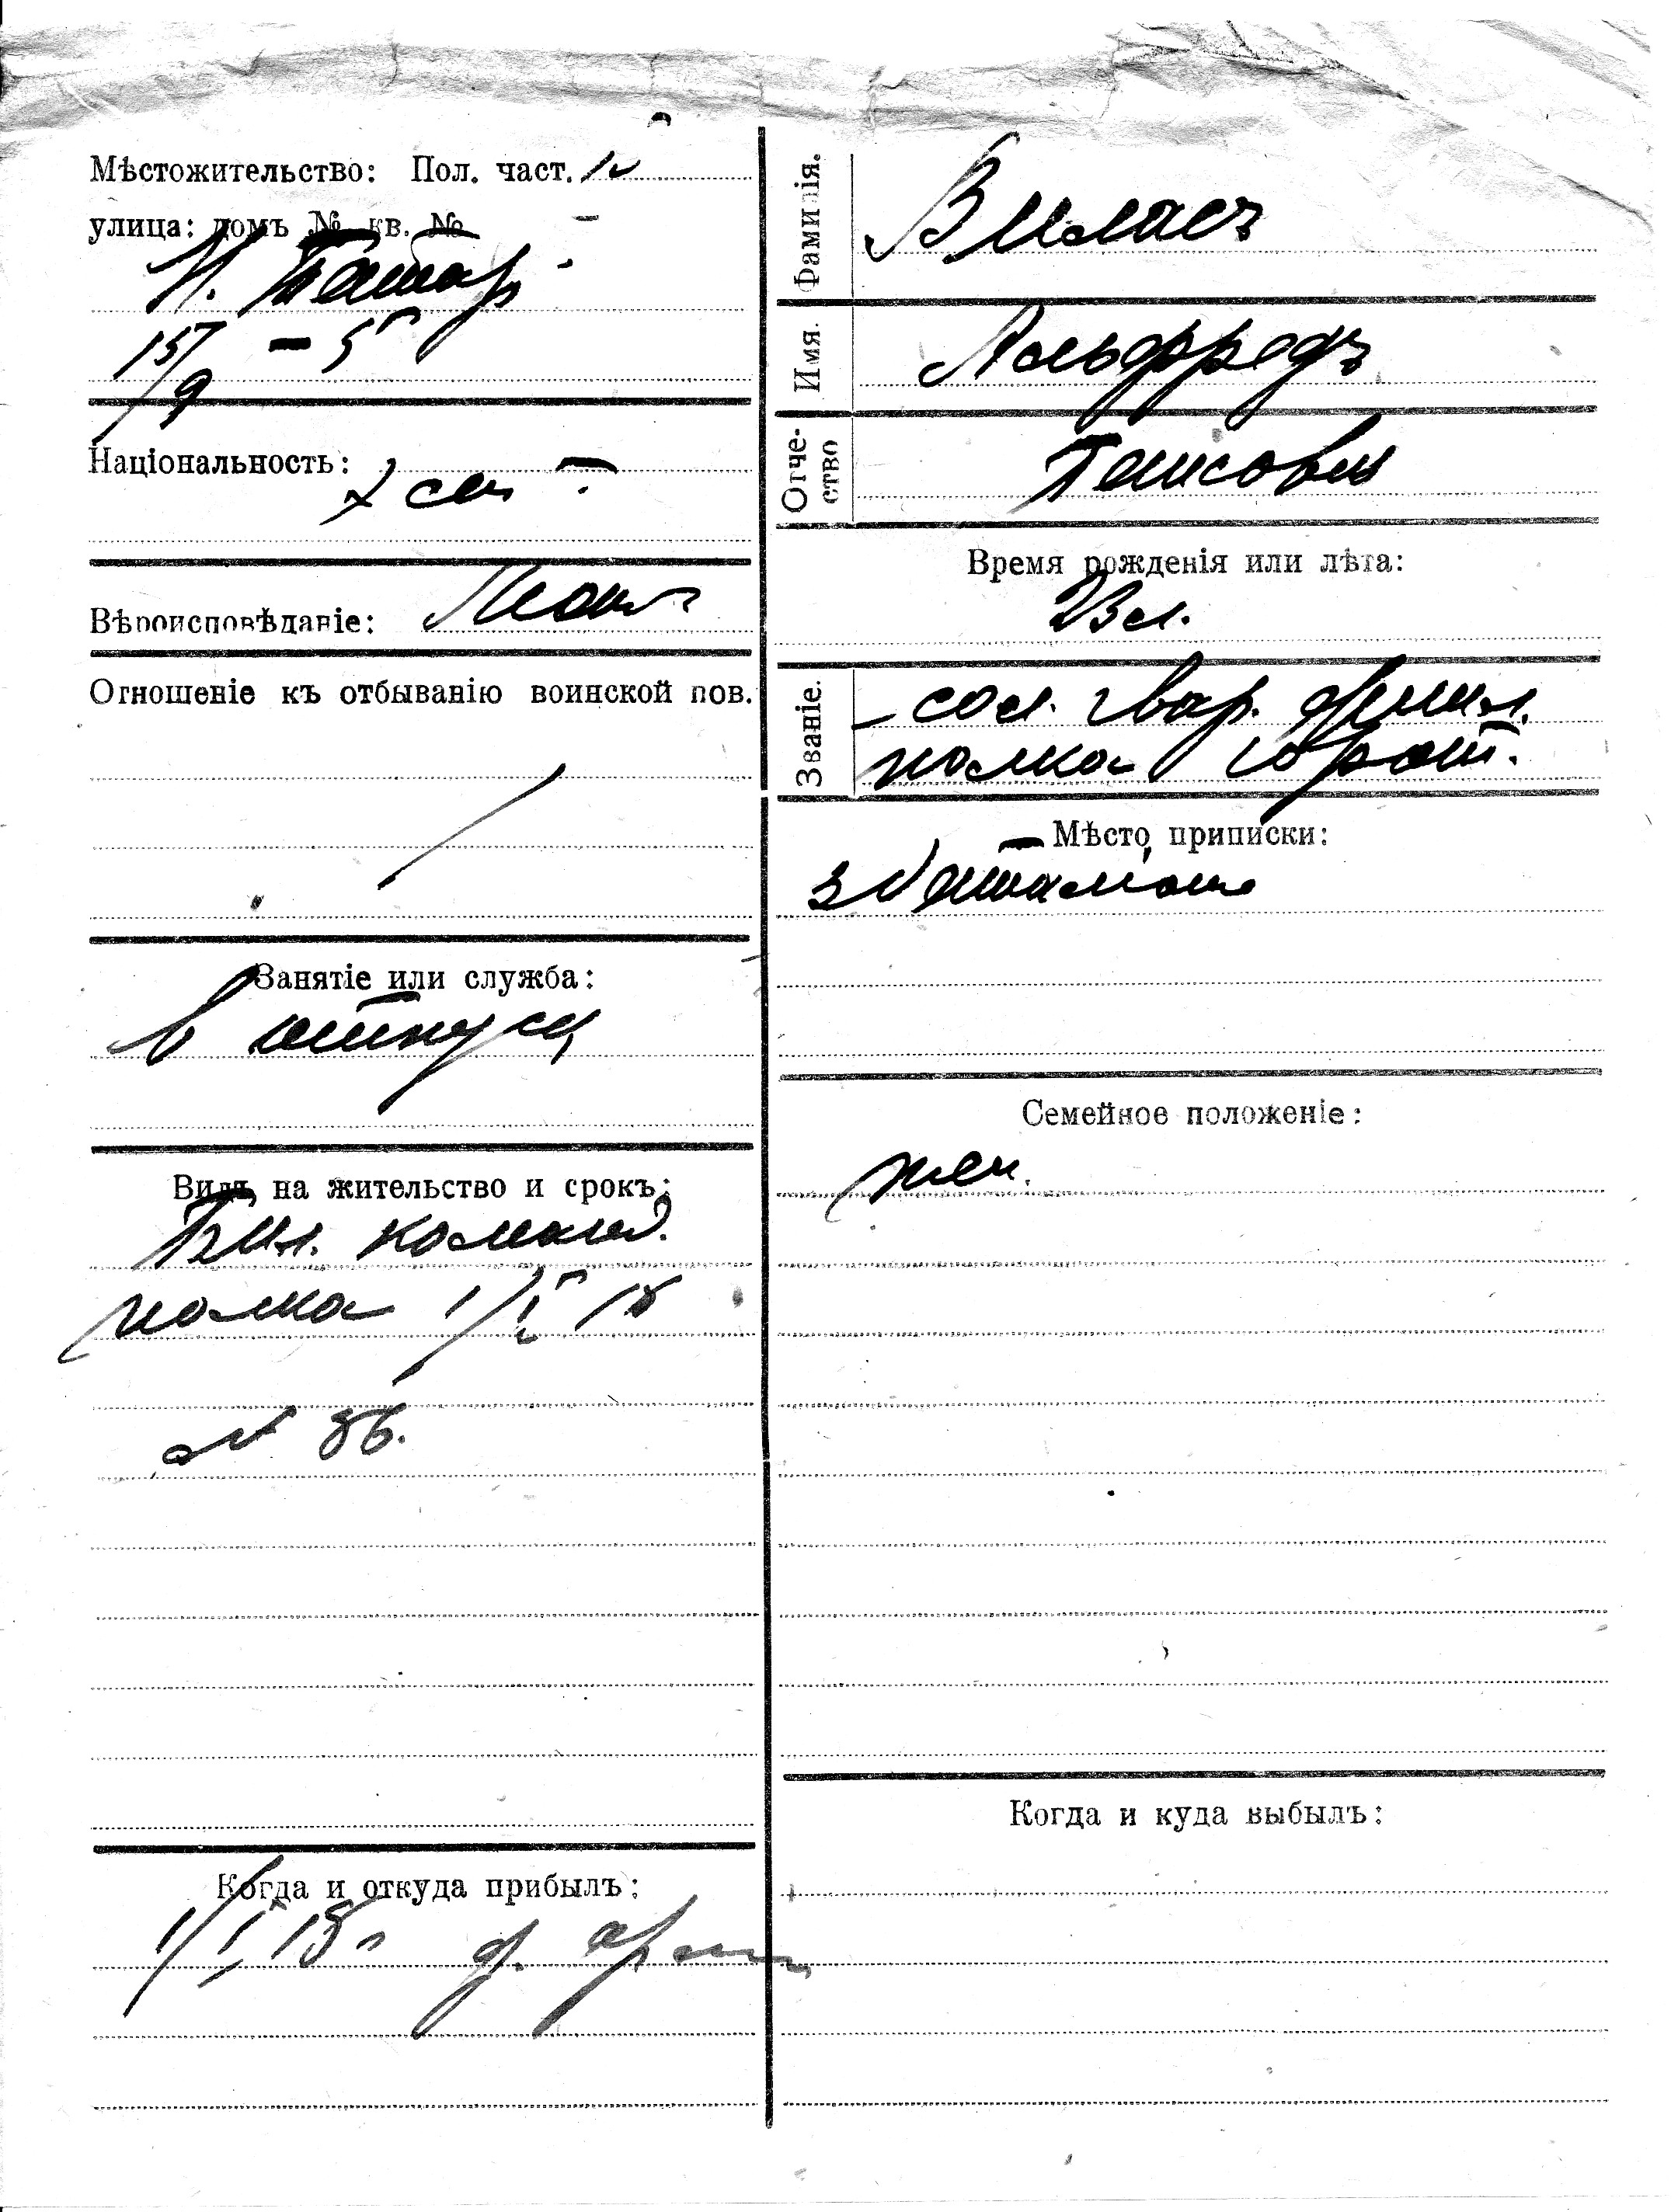 Мѣстожительство: Пол. част. 1
улица: домъ № кв. №
Н. Татар.
15/9 - 5
Національность: эст.
Вѣроисповѣданіе: Лют.
Отношеніе къ отбыванію воинской пов.
Занятіе или служба:
в отпуску
Видъ на жительство и срокъ:
Бил. команд.
полка 1/I 18
№ 86.
Когда и откуда прибылъ:
1/I 18 г.
Фамилія. Виллас
Имя. Альфредъ
Отчество
Время рожденія или лѣта:
23 л.
Званіе. сол. гвар. Финл.
полка
Мѣсто приписки:
Семейное положеніе:
жен.
Когда и куда выбылъ: